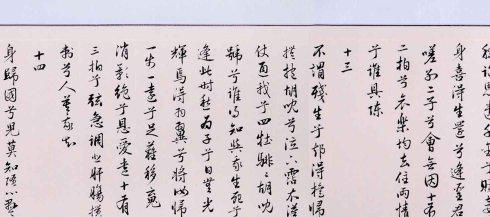 千金兮贖妾
身喜得生還兮逢聖君
嗟別二子兮會無因十有
二拍兮哀樂均去住兩情
兮誰具陳
十三
不謂殘生兮却得旋歸
撫抱胡兒兮泣下霑
使迎我兮四牡騑騑胡兒
號兮誰得知與我生死兮
逢此時愁為子兮日無光
輝焉得羽翼兮將汝歸
一步一遠兮足難移魂
消影絕兮恩愛遺十有
三拍兮弦急調悲肝腸攪
刺兮人莫我知
十四
身歸國兮兒莫知隨心懸